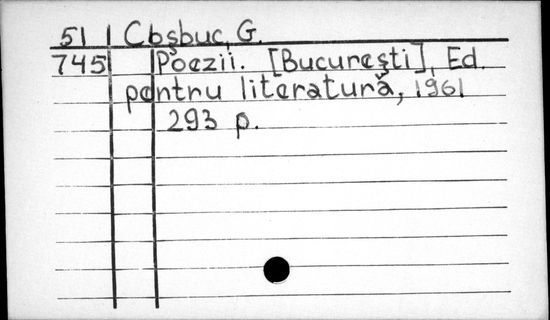 51 Coşbuc, G.
745 Poezii. [Bucureşti], Ed.
pentru literatură, 1961
293 p.